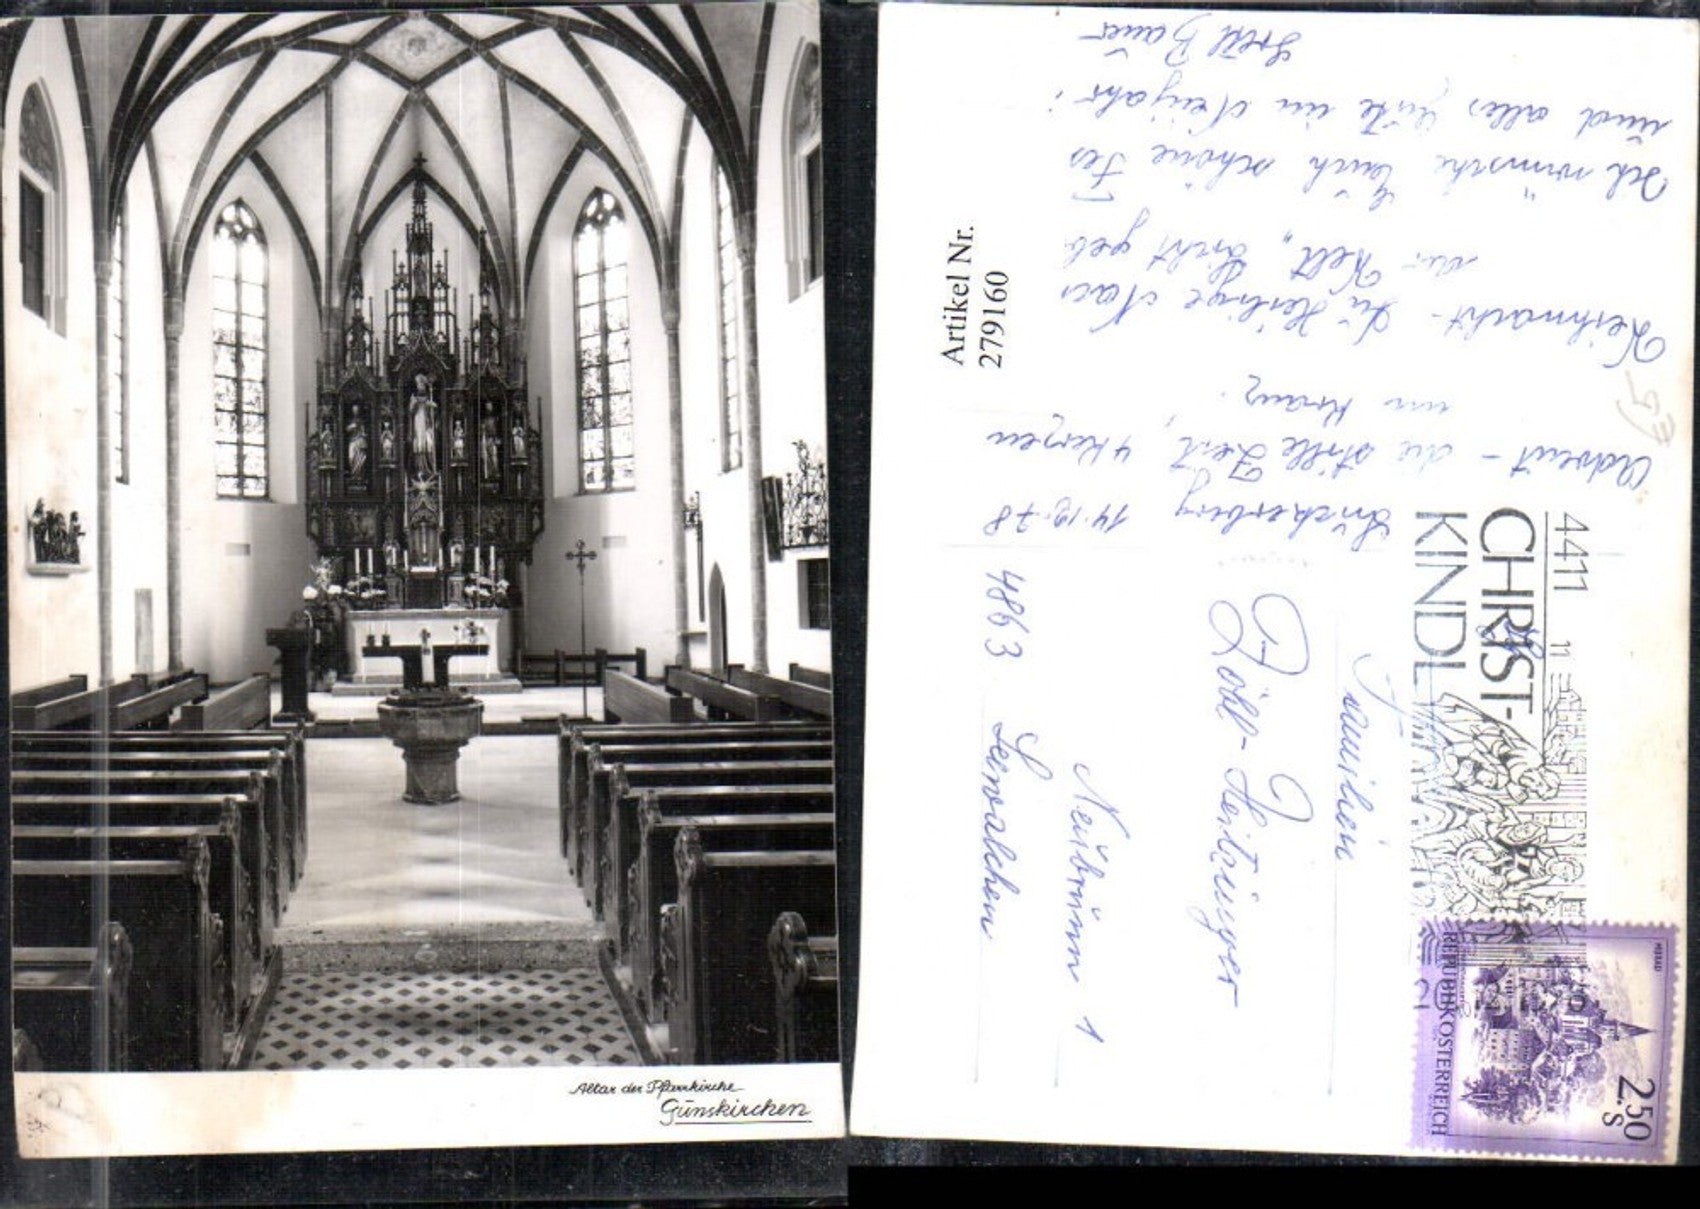 Altar der Pfarrkirche
Günskirchen
Artikel Nr.
279160
14.12.78
Advent - die stille Zeit, 4 Kerzen
im Kranz.
Weihnacht - Die Heilige Nacht
der Welt, Licht geb
Ich wünsche Euch schöne Fes
und alles Gute im Neujahr!
Bauer
4411
CHRIST-
KINDL
11
REPUBLIK ÖSTERREICH
2.50
S
Familien
Neubrunn 1
4863 Seewalchen